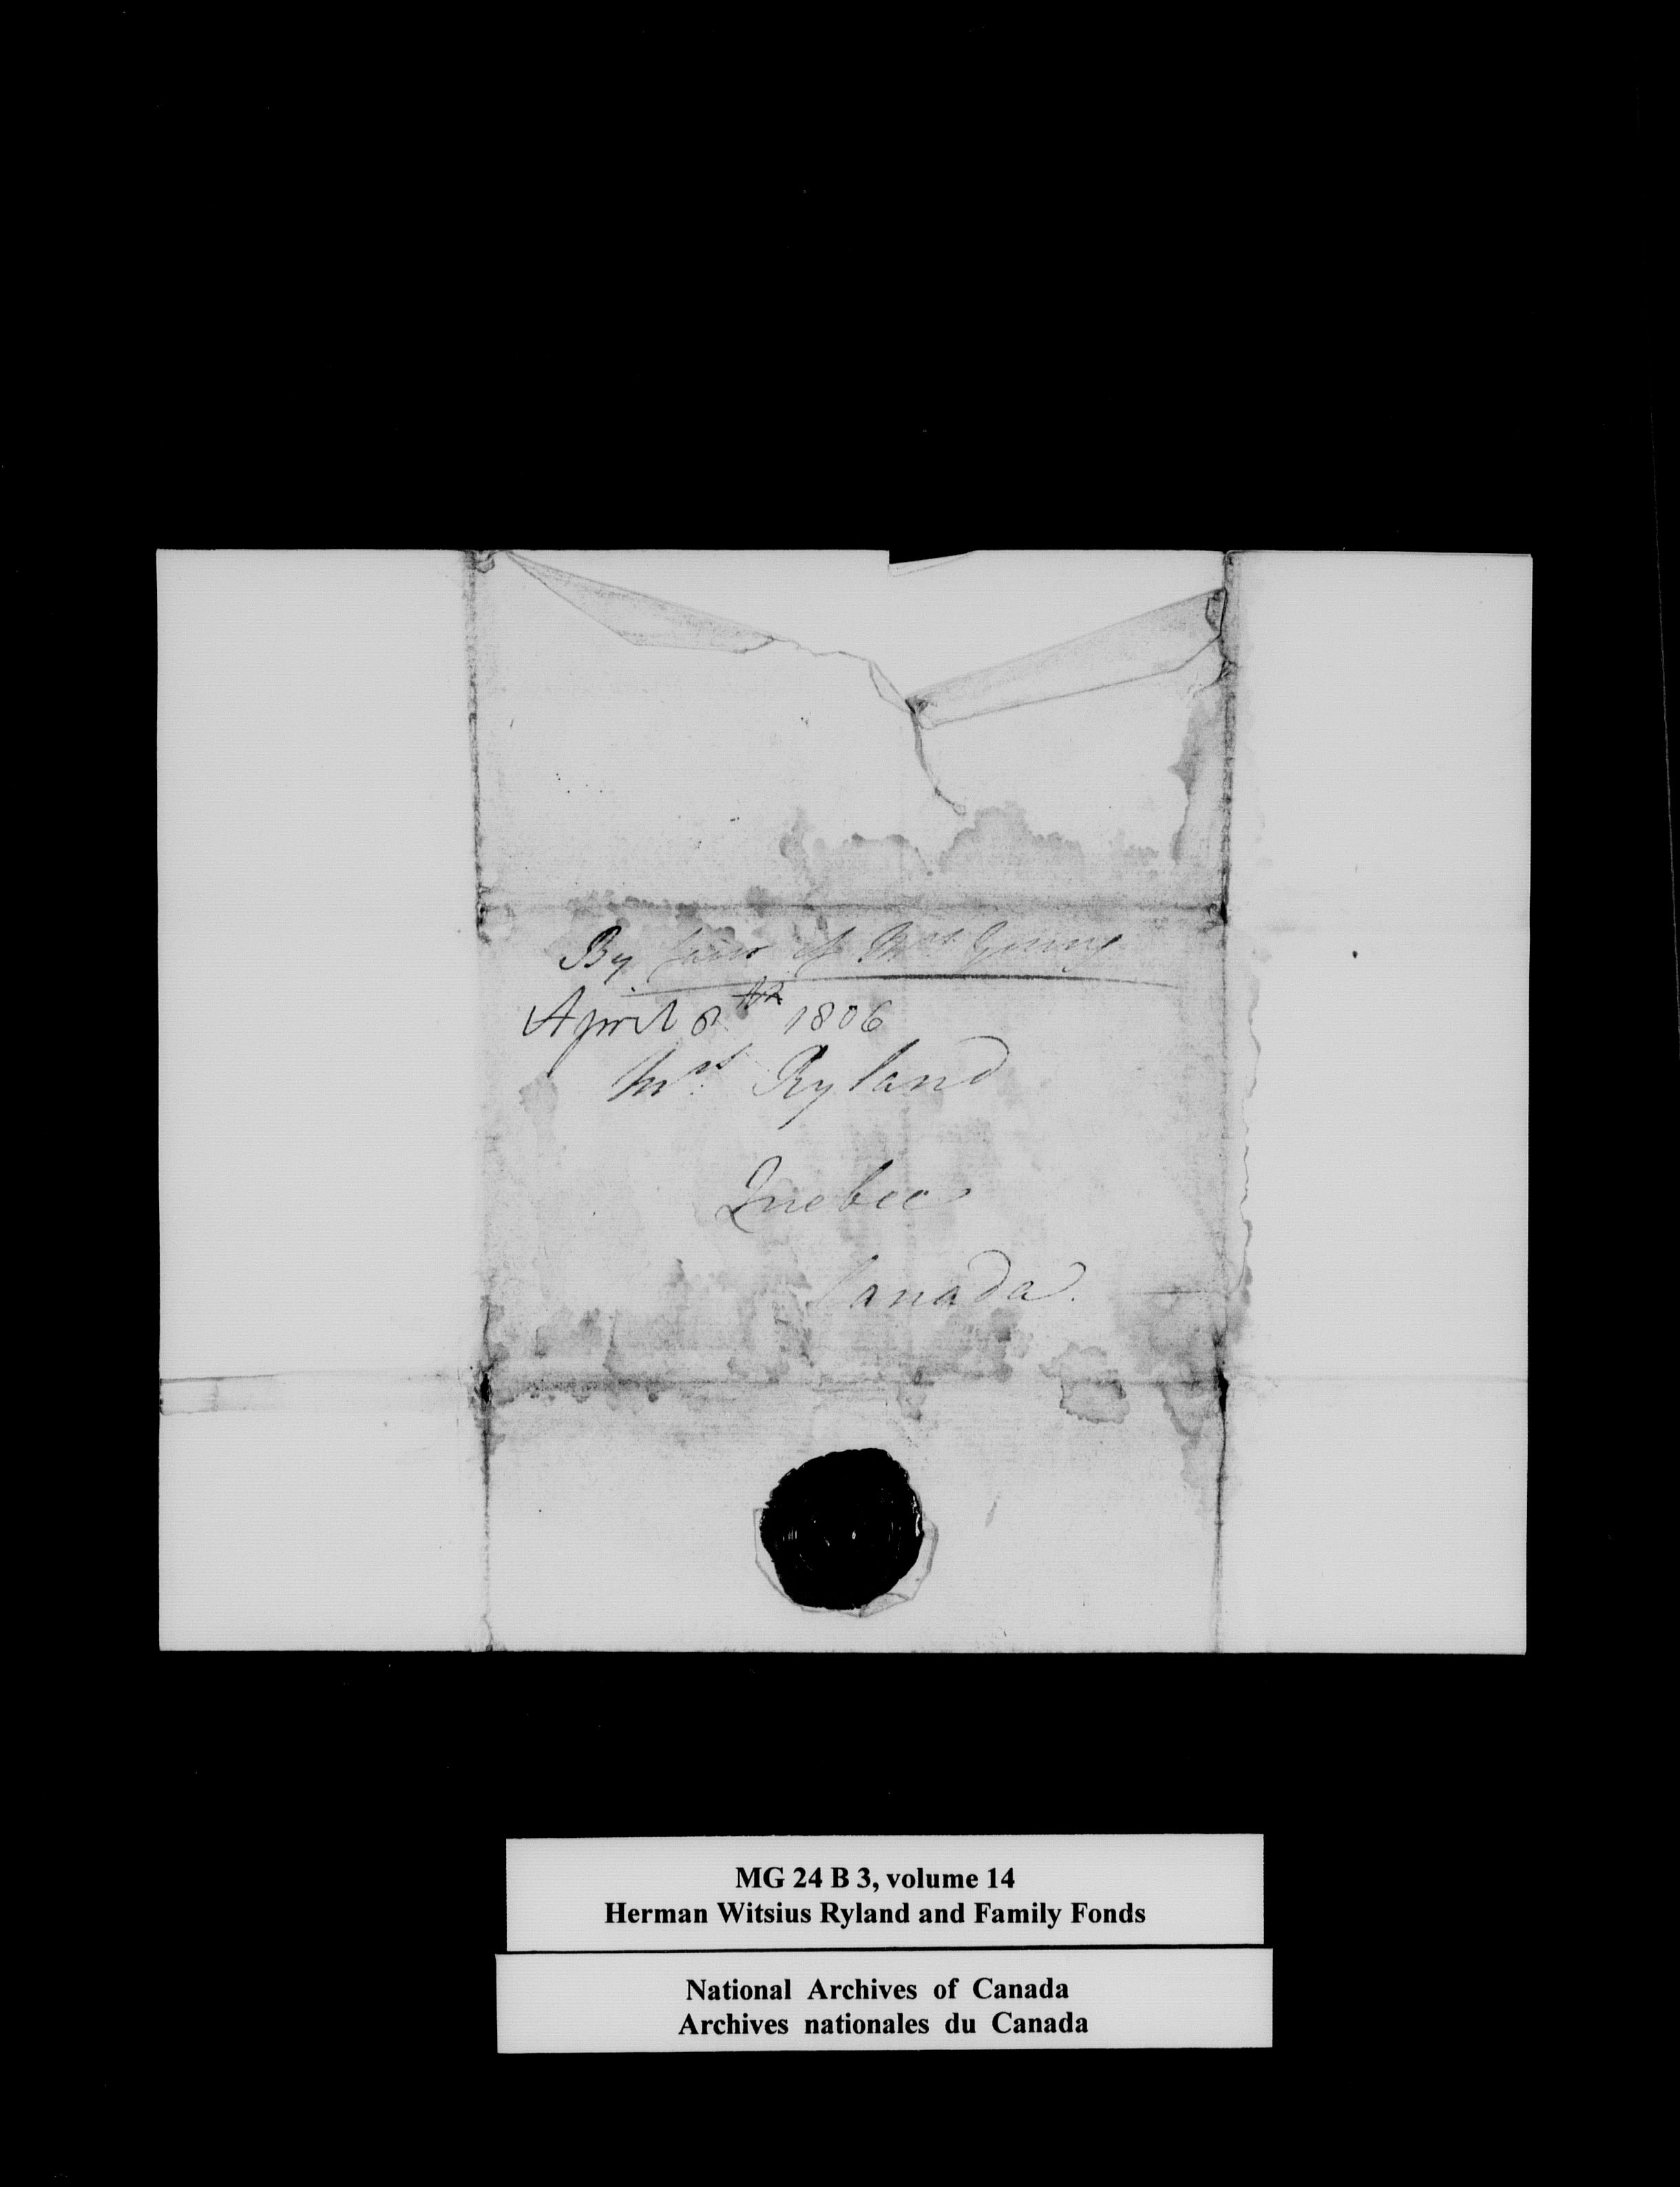 By favor of Mrs
April 8th 1806
Mrs Ryland
Quebec
Canada.
MG 24 B 3, volume 14
Herman Witsius Ryland and Family Fonds
National Archives of Canada
Archives nationales du Canada